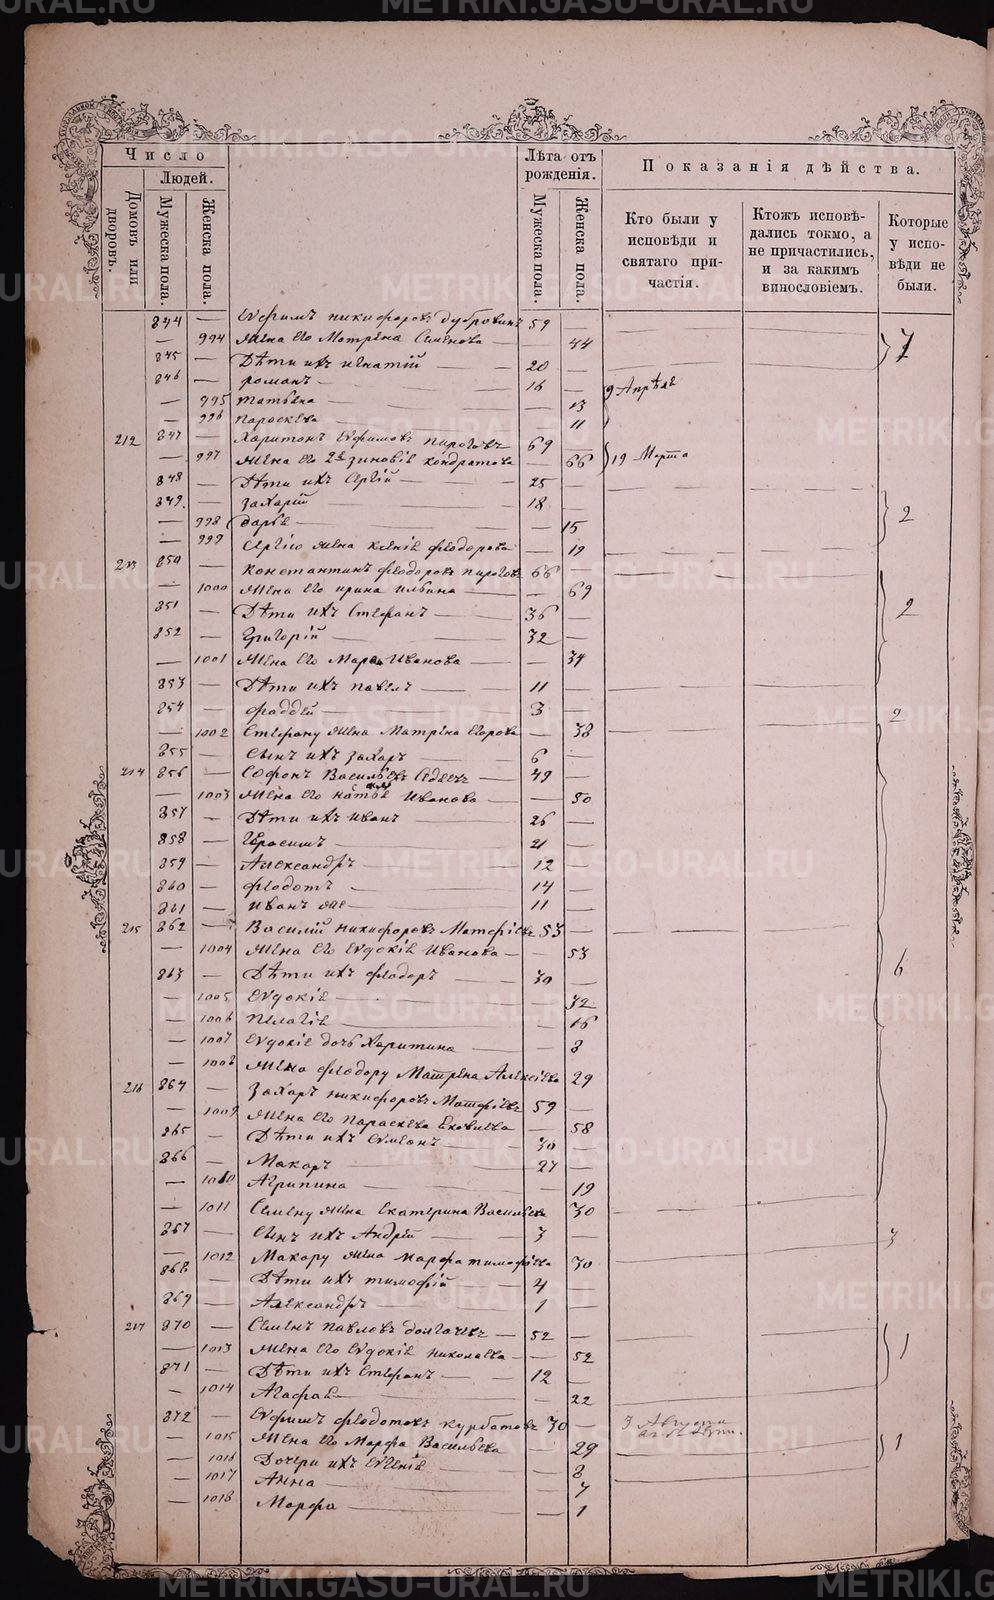 Число
Людей.
Домовъ или дворовъ.
Мужеска пола.
Женска пола.
Лѣта отъ рожденія.
Мужеска пола.
Женска пола.
Показанія дѣйства.
Кто были у исповѣди и святаго причастія.
Ктожъ исповѣдались токмо, а не причастились, и за какимъ винословіемъ.
Которые у исповѣди не были.
844 — Евфимъ Никифоровъ Дубровинъ 59 —
— 994 Жена его Матрена Семенова — 44 1
845 — Дѣти ихъ Игнатій 20 —
846 — Романъ 16 — 9 Апрѣля
— 995 Татьяна — 13
— 996 Параскева — 11
212 847 — Харитонъ Евфимовъ Пироговъ 69 —
— 997 Жена его 2я Зиновія Кондратова — 66 19 Марта
848 — Дѣти ихъ Сергій 25 —
849 — Захарій 18 —
— 998 Дарья — 15 2
— 999 Сергію жена Ксенія Феодорова — 19
213 850 — Константинъ Феодоровъ Пироговъ 66 —
— 1000 Жена его Ирина Ильина — 69
851 — Дѣти ихъ Стефанъ 36 — 2
852 — Григорій 32 —
— 1001 Жена его Марфа Иванова — 34
853 — Дѣти ихъ Павелъ 11 —
854 — Фаддей 3 — 2
— 1002 Стефану жена Матрена Егорова — 38
855 — Сынъ ихъ Захаръ 6 —
214 856 — Софонъ Васильевъ 49 —
— 1003 Жена его Иванова — 50
857 — Дѣти ихъ Иванъ 26 —
858 — Герасимъ 21 —
859 — Александръ 12 —
860 — Феодотъ 14 —
861 — Иванъ 11 —
215 862 — Василій Никифоровъ Матфіевъ 53 —
— 1004 Жена его Евдокія Иванова — 53
863 — Дѣти ихъ Феодоръ 30 — 6
— 1005 Евдокія — 32
— 1006 Пелагія — 16
— 1007 Евдокіе дочь Харитина — 8
— 1008 Жена Феодору Матрена Алексіева 29
216 864 — Захаръ Никифоровъ Матфіевъ 59 —
— 1009 Жена его Параскева — 58
865 — Дѣти ихъ Симеонъ 30 —
866 — Макаръ 27 —
— 1010 Агрипина — 19
— 1011 Семену жена Екатерина Васильева 30
867 — Сынъ ихъ Андрей 3 — 3
— 1012 Макару жена Марфа Тимофіева 30
868 — Дѣти ихъ Тимофій 4 —
869 — Александръ 1 —
217 870 — Семенъ Павловъ Долгачевъ 52 —
— 1013 Жена его Евдокія Николаева — 52 1
871 — Дѣти ихъ Стефанъ 12 —
— 1014 Агафья — 22
872 — Евфимъ Феодотовъ Курбатовъ 30 — 3 Августа
— 1015 Жена его Марфа Васильева 29 1
— 1016 Дочери ихъ Евгенія — 8
— 1017 Анна — 4
— 1018 Марфа — 1